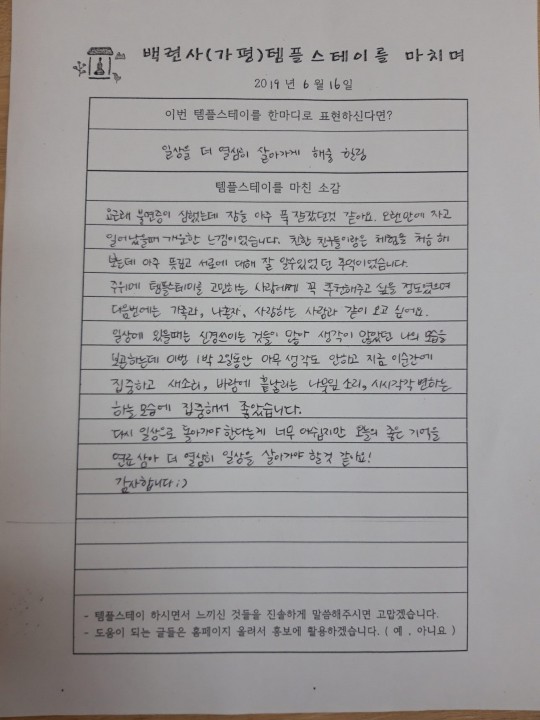 백련사(가평)템플스테이를 마치며
2019년 6월 16일
이번 템플스테이를 한마디로 표현하신다면?
일상을 더 열심히 살아가게 해줄 힐링
템플스테이를 마친 소감
요근래 불면증이 심했는데 잠을 아주 푹 잘잤던것 같아요. 오랜만에 자고
일어났을때 개운한 느낌이었습니다. 친한 친구들이랑은 체험을 처음 해
보는데 아주 뜻깊고 서로에 대해 잘 알수있었던 추억이었습니다.
주위에 템플스테이를 고민하는 사람에게 꼭 추천해주고 싶을 정도였으며
다음번에는 가족과, 나혼자, 사랑하는 사람과 같이 오고 싶어요.
일상에 있을때는 신경쓰이는 것들이 많아 생각이 많았던 나의 모습을
보곤하는데 이번 1박 2일동안 아무 생각도 안하고 지금 이순간에
집중하고 새소리, 바람에 흩날리는 나뭇잎 소리, 시시각각 변하는
하늘 모습에 집중해서 좋았습니다.
다시 일상으로 돌아가야 한다는게 너무 아쉽지만 오늘의 좋은 기억을
연료삼아 더 열심히 일상을 살아가야 할것 같아요!
감사합니다 :)
- 템플스테이 하시면서 느끼신 것들을 진솔하게 말씀해주시면 고맙겠습니다.
- 도움이 되는 글들은 홈페이지 올려서 홍보에 활용하겠습니다. ( 예 , 아니요 )